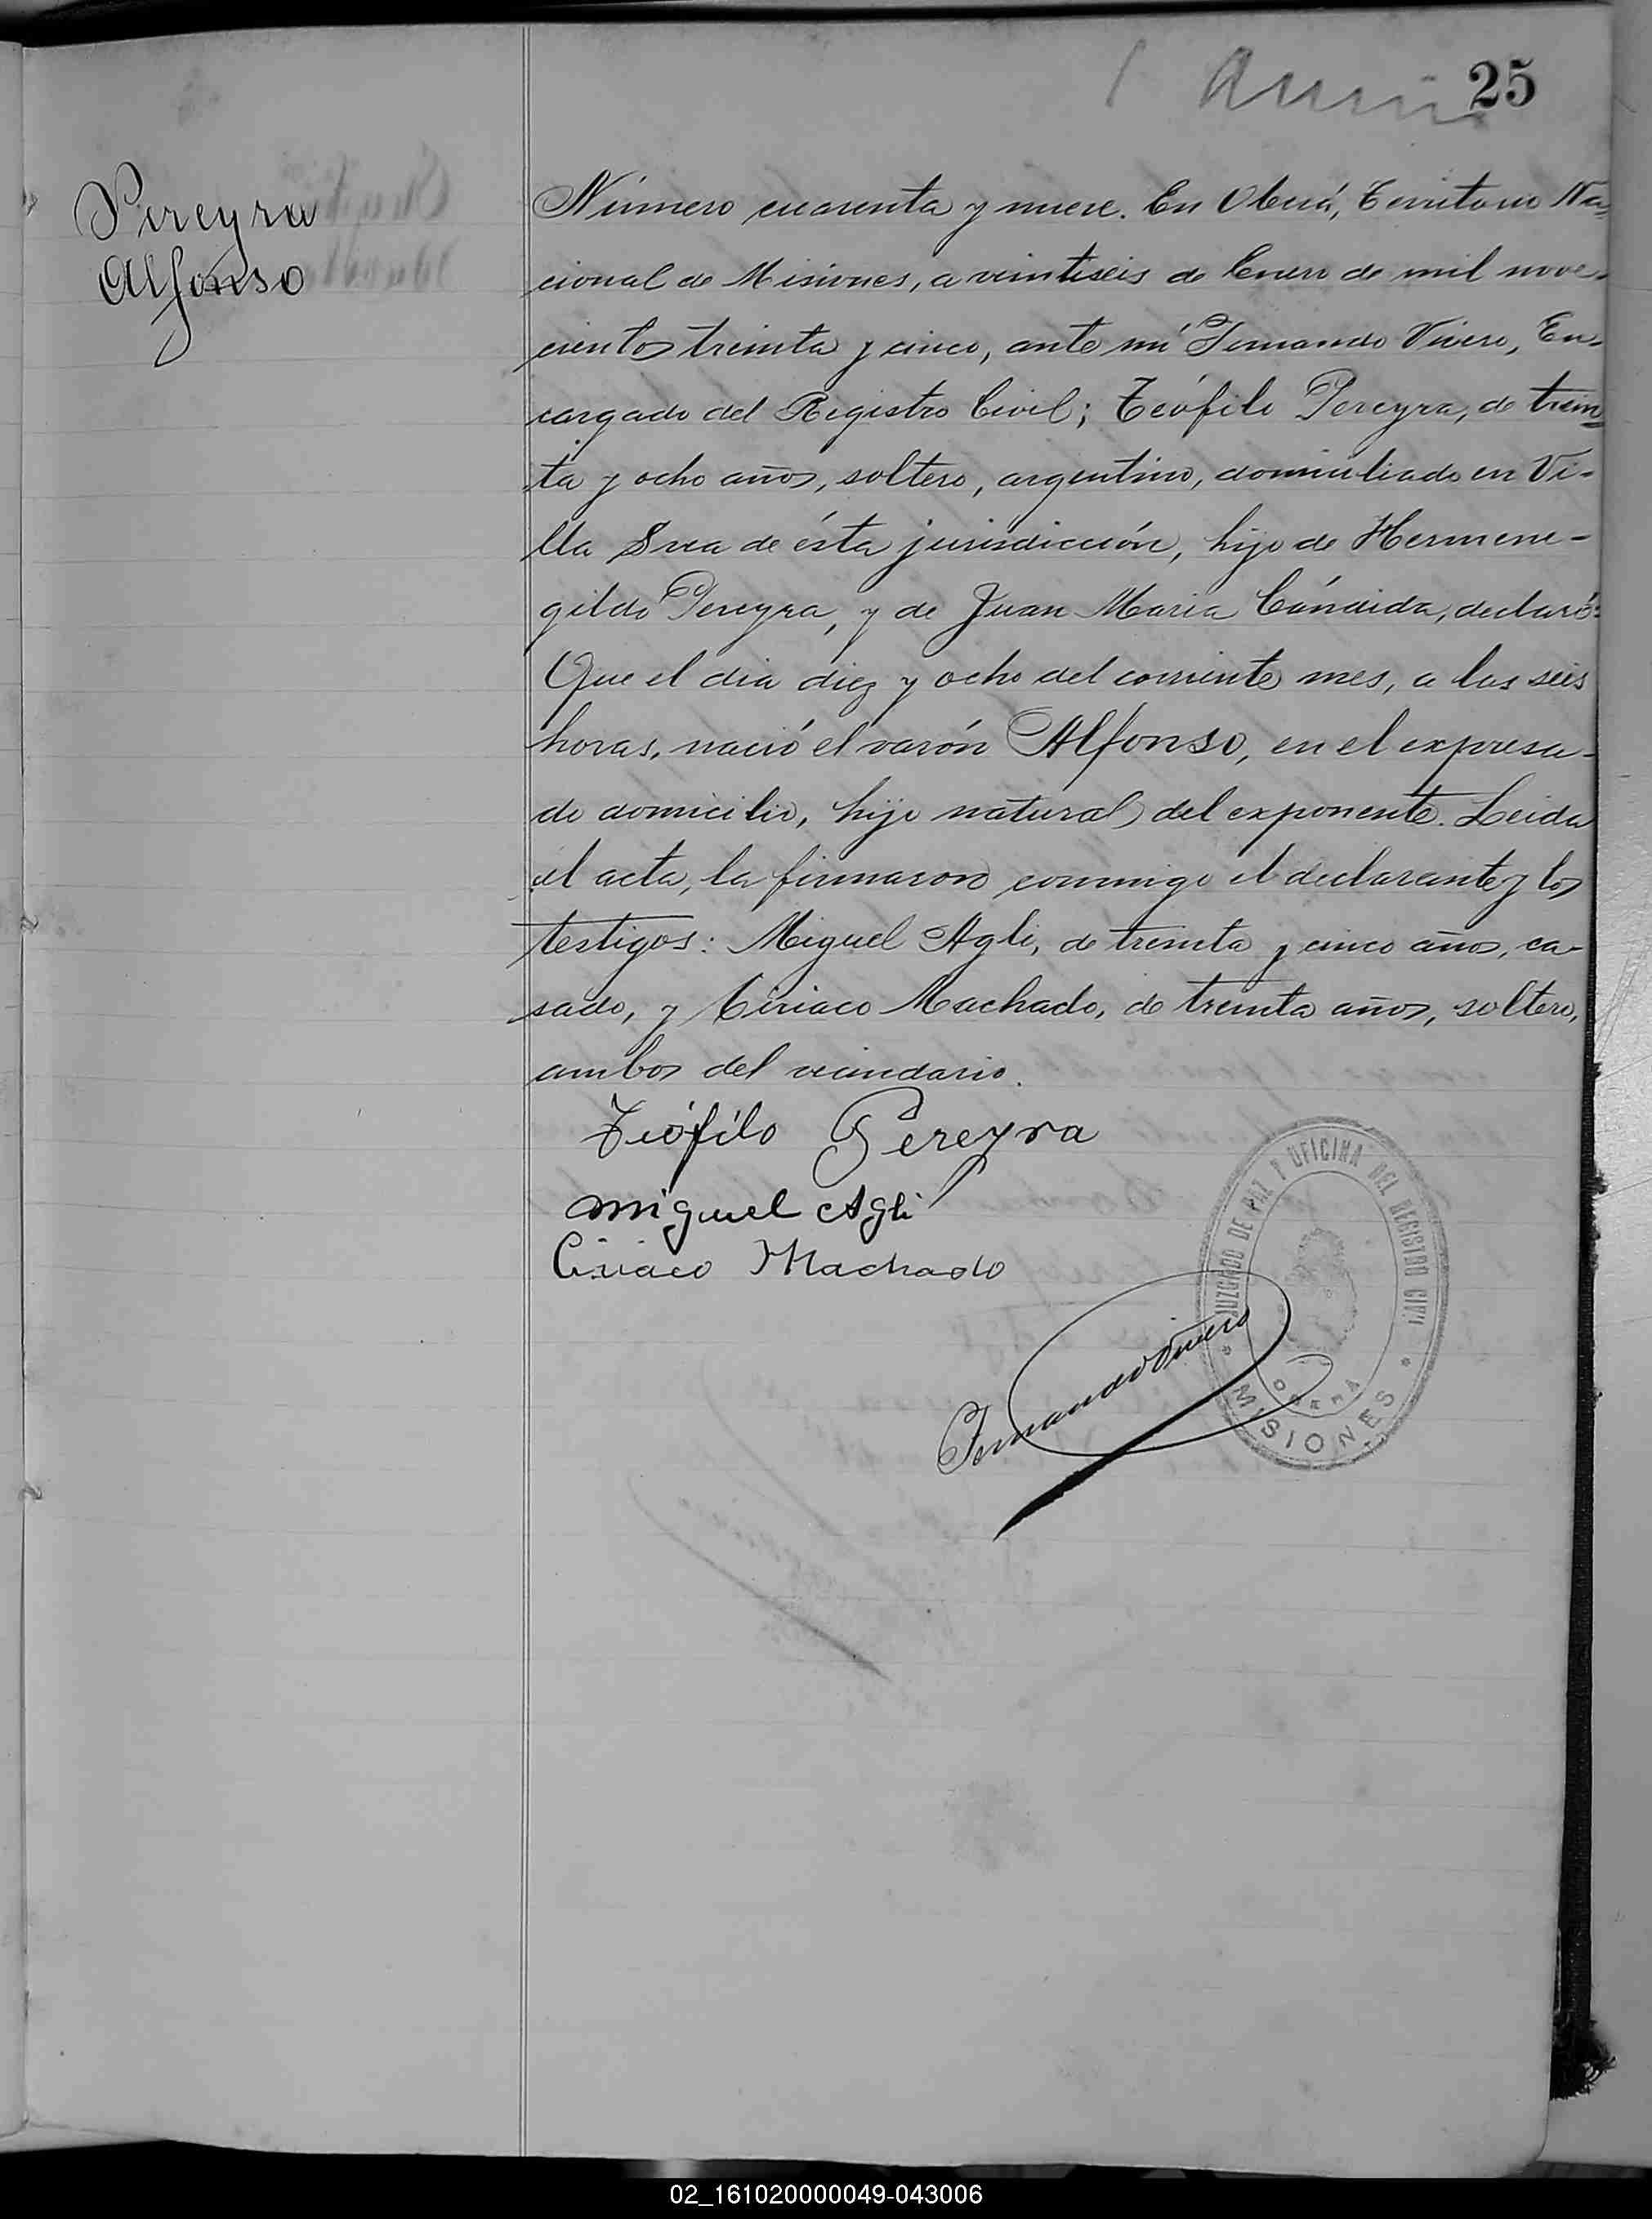 25
Pereyra
Alfonso
Número cuarenta y nueve. En Oberá, Territorio Na-
cional de Misiones, a veintiseis de Enero de mil nove-
cientos treinta y cinco, ante mí Fernando Vivero, En-
cargado del Registro Civil; Teófilo Pereyra, de trein-
ta y ocho años, soltero, argentino, domiciliado en Vi-
lla Svea de ésta jurisdicción, hijo de Hermene-
gildo Pereyra, y de Juan Maria Cándida, declaró:
Que el dia diez y ocho del corriente mes, a las seis
horas, nació el varón Alfonso, en el expresa-
do domicilio, hijo natural del exponente. Leida
el acta, la firmaron conmigo el declarante y los
testigos: Miguel Agli, de treinta y cinco años, ca-
sado, y Ciriaco Machado, de treinta años, soltero,
ambos del vecindario.
Teófilo Pereyra
Miguel Agli
Ciriaco Machado
Fernando Vivero
JUZGADO DE PAZ Y OFICINA DEL REGISTRO CIVIL
OBERÁ
* MISIONES *
02_161020000049-043006